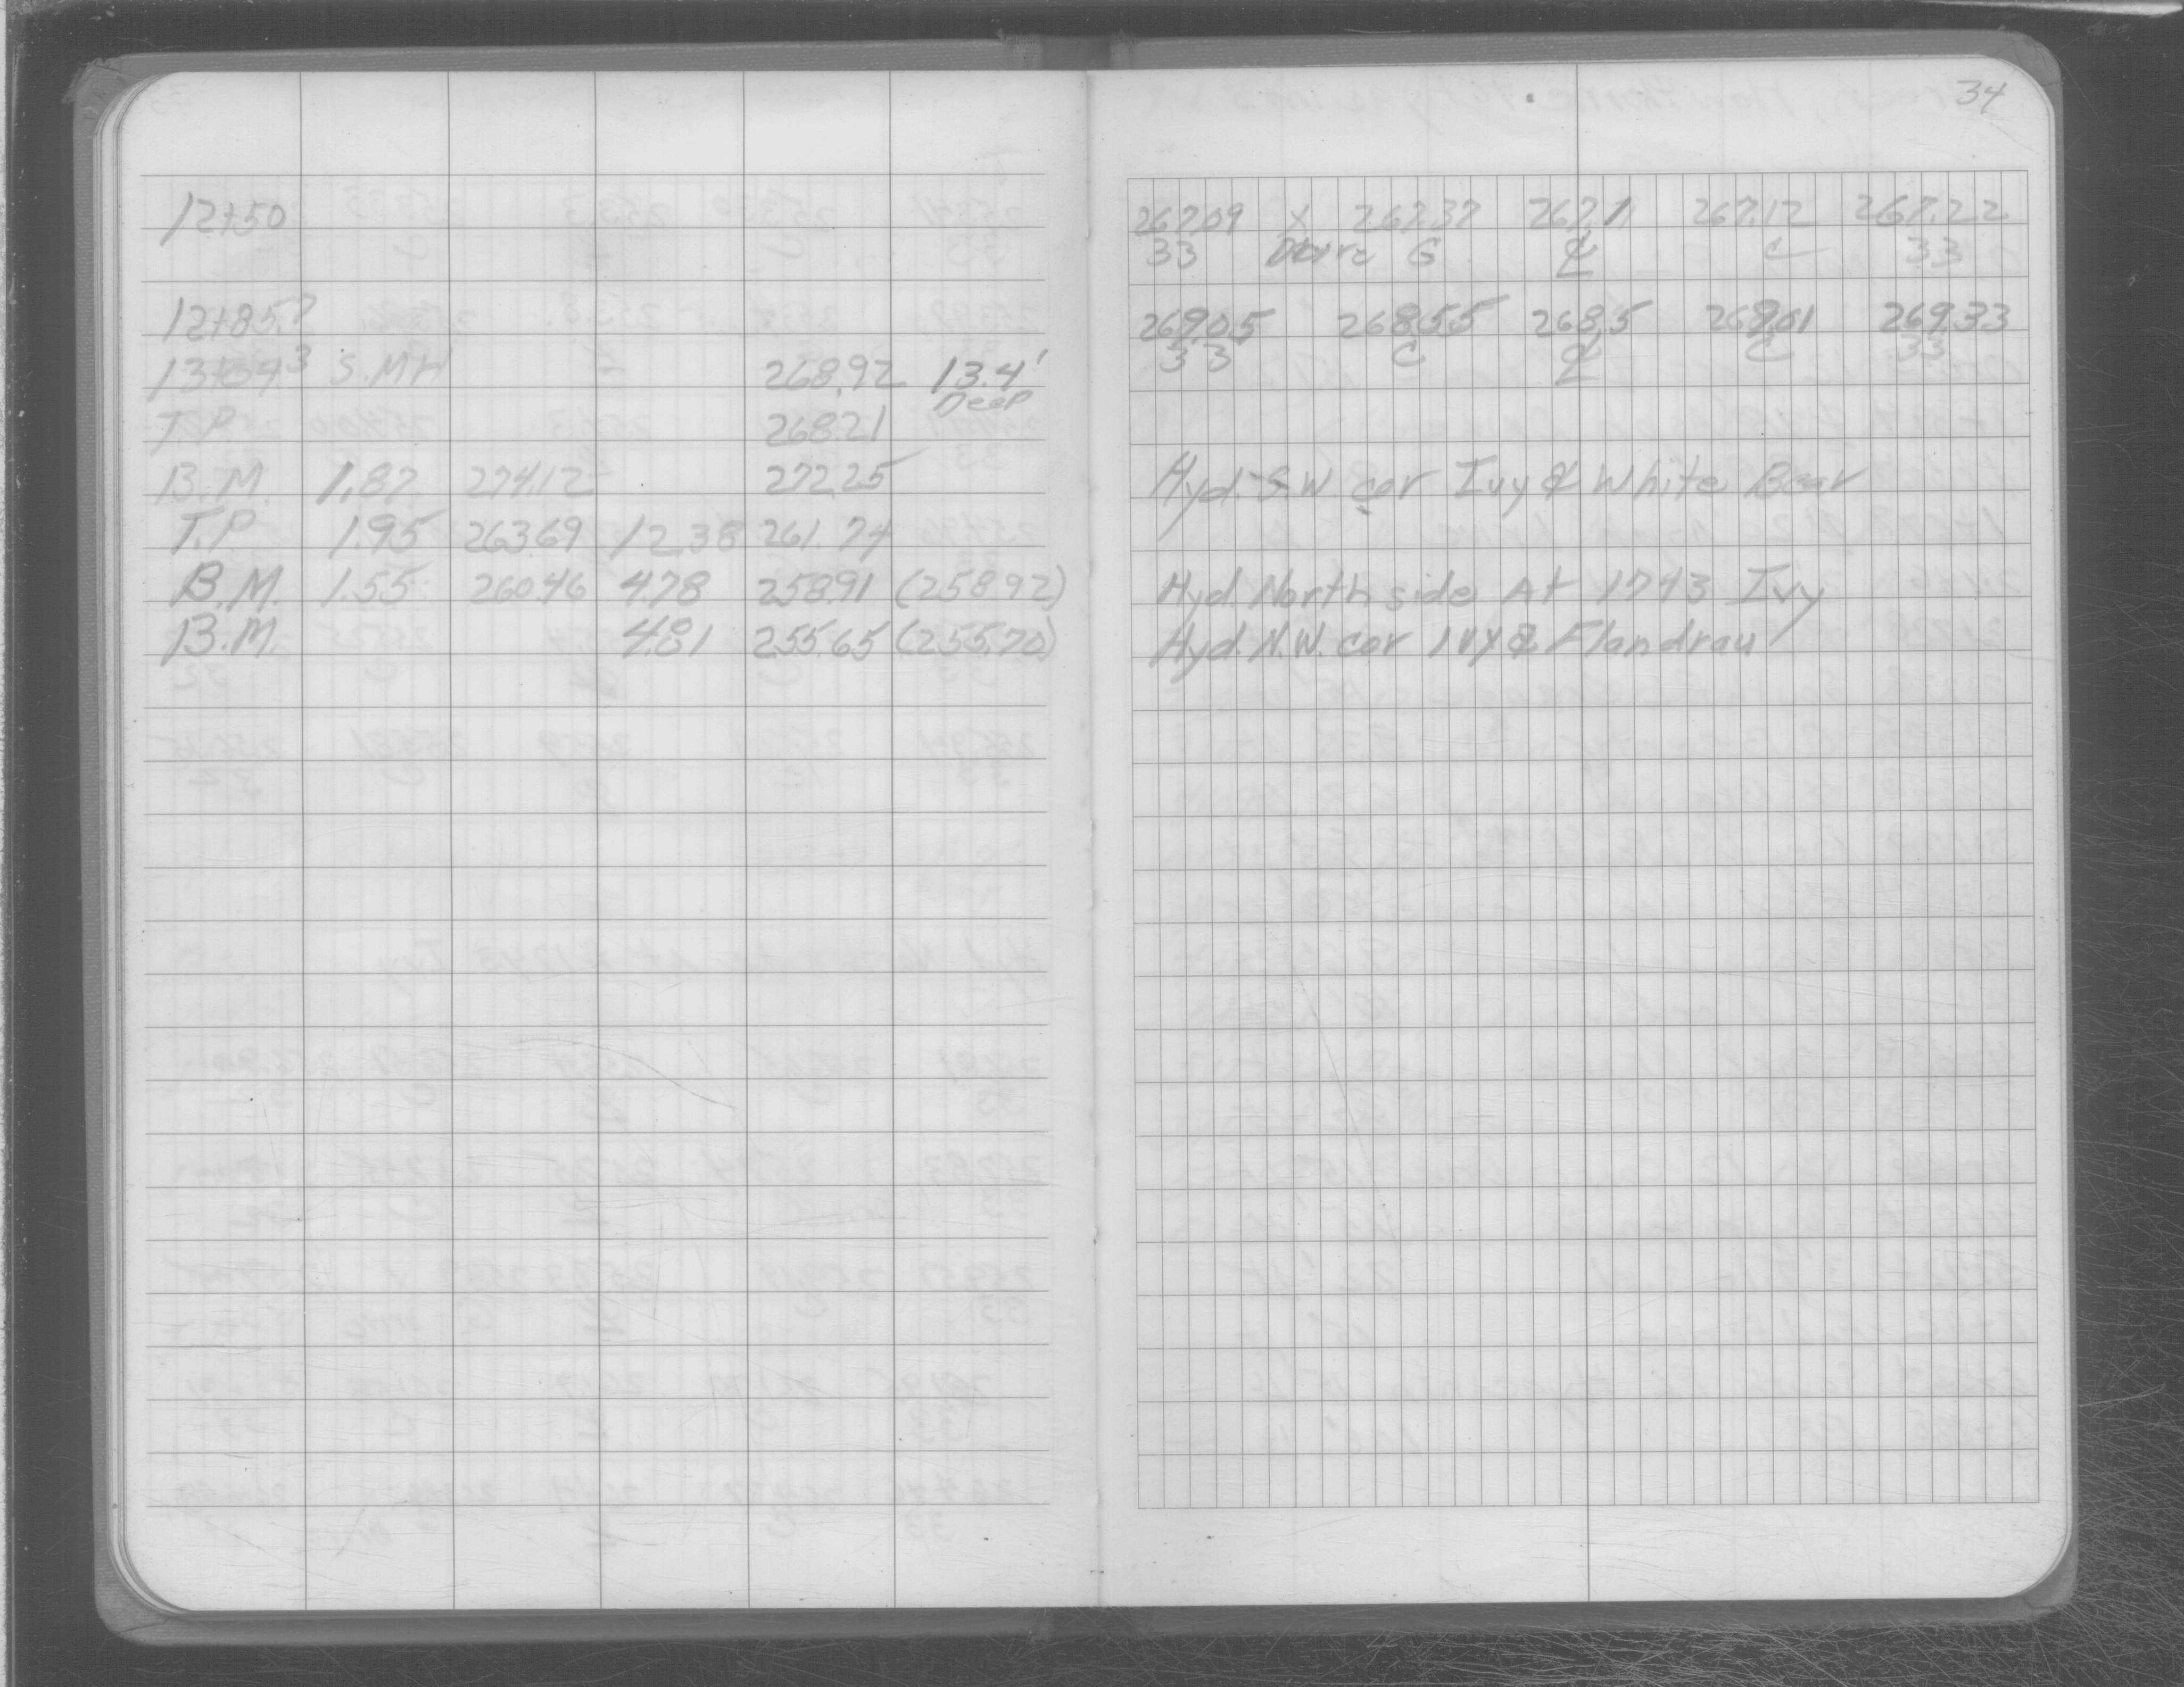 34
12+50
12+85.7
13+39.3 S.MH 268.92 13.4'
Deep
T.P. 268.21
B.M. 1.87 274.12 272.25
T.P. 1.95 263.69 12.38 261.74
B.M. 1.55 260.46 4.78 258.91 (258.92)
B.M. 4.81 255.65 (255.70)
267.09 X 267.37 267.7 267.12 267.22
33 G ℄ C 33
269.05 268.55 268.5 268.01 269.33
33 C ℄ C 33
Hyd. S.W cor Ivy & White Bear
Hyd. North side At 1743 Ivy
Hyd. N.W. cor Ivy & Flandrau